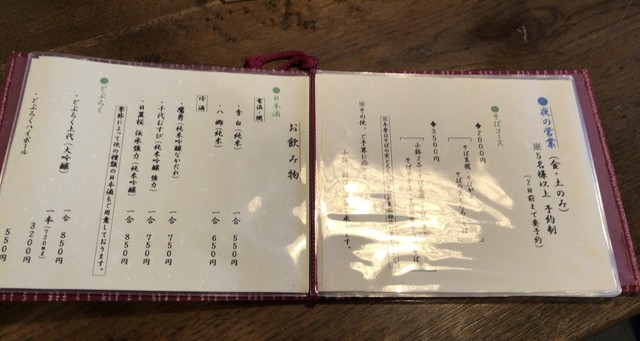 ●夜の営業(金・土のみ)
※5名様以上 予約制
(2日前まで要予約)
●そばコース
◆2000円
そば豆腐
◆3500円
小鉢2品
※その他、ご予算に
ます。
お飲み物
●日本酒
常温・燗
・李白(純米) 一合 550円
・八郷(純米) 一合 650円
冷酒
・鷹勇(純米吟醸なかだれ) 一合 750円
・千代むすび(純米吟醸 強力) 一合 750円
・日置桜 伝承強力(純米吟醸) 一合 850円
季節によって他の種類の日本酒もご用意しております。
●どぶろく
・どぶろく上代(大吟醸) 一合 850円
一本(720ml) 3200円
・どぶろくハイボール 550円
550円